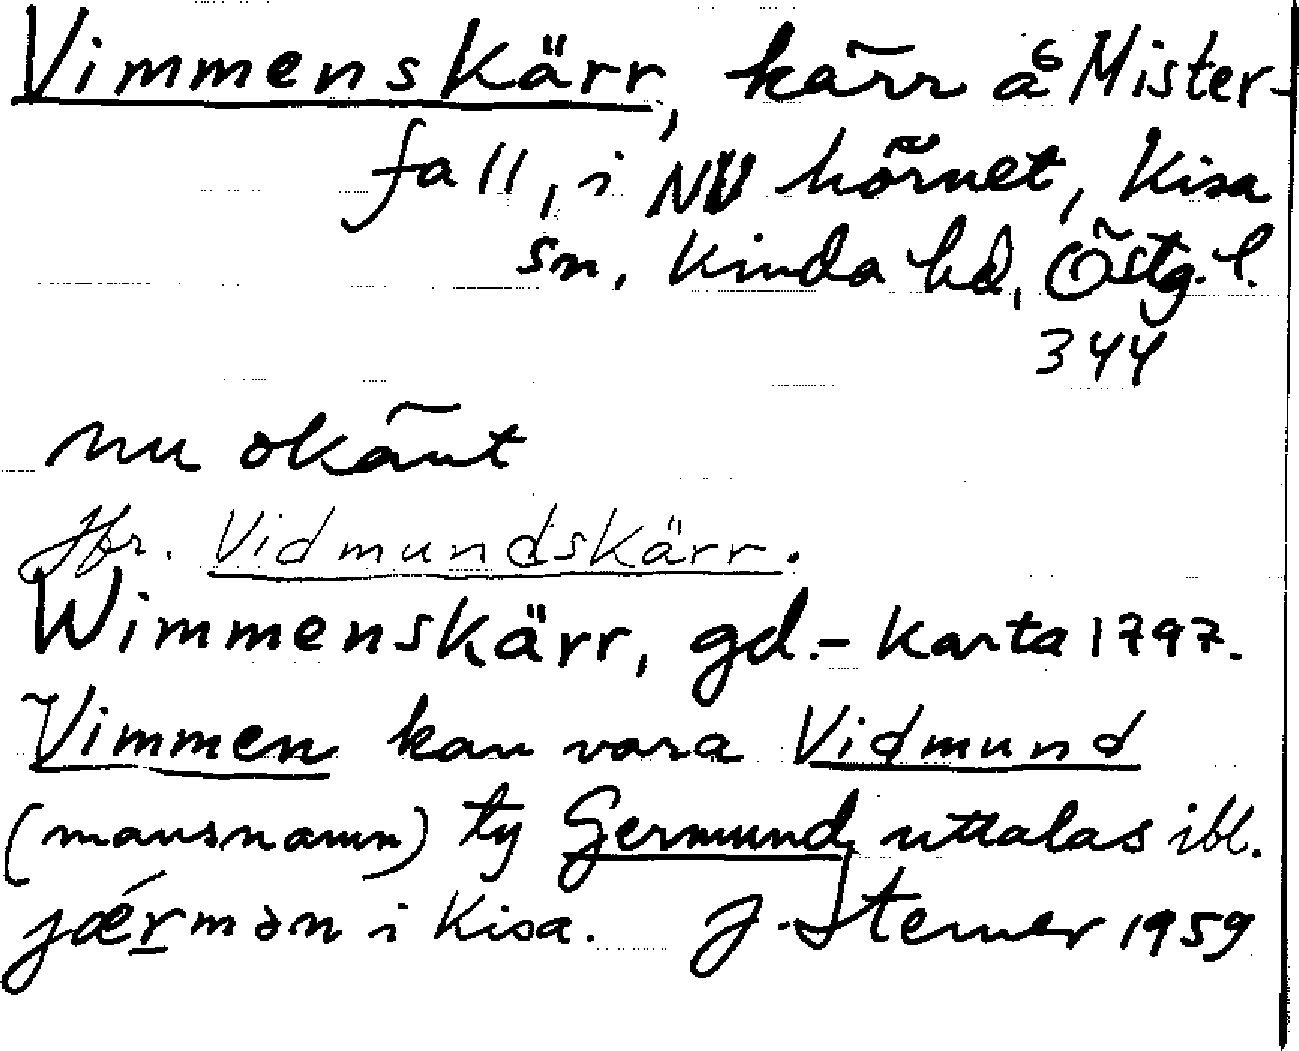 Vimmenskärr, kärr å Mister-
fall, i NV hörnet, Kisa
sn, Kinda hd, Östg. l.
344
nu okänt
Jfr. Vidmundskärr.
Wimmenskärr, gd.- Karta 1797.
Vimmen kan vara Vidmund
(mansnamn) ty Germund uttalas ibl.
jǽrmən i Kisa. J. Sterner 1959